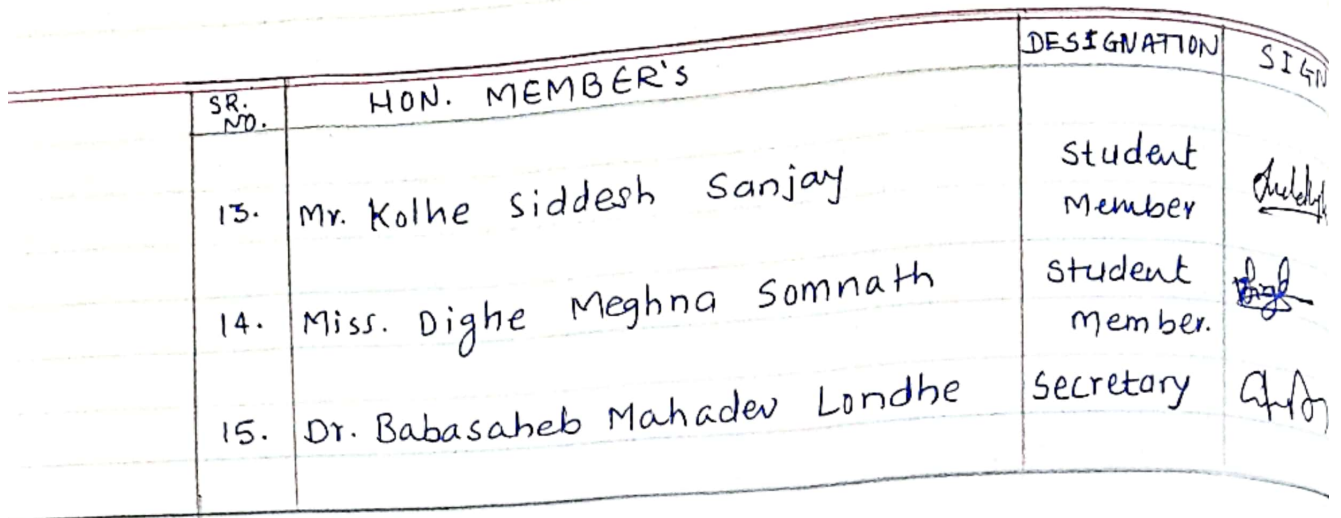 SR. NO. HON. MEMBER'S DESIGNATION SIGN
13. Mr. Kolhe Siddesh Sanjay Student Member
14. Miss. Dighe Meghna Somnath Student Member.
15. Dr. Babasaheb Mahadev Londhe Secretary